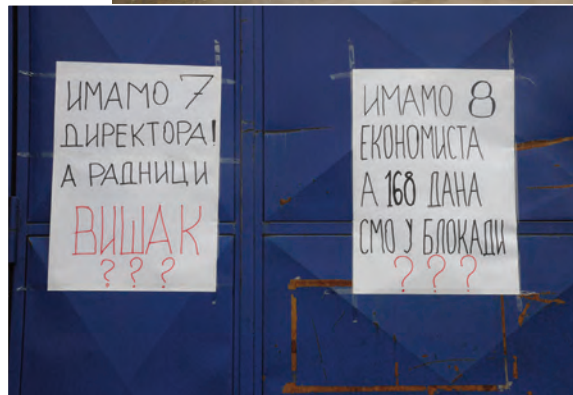 ИМАМО 7
ДИРЕКТОРА!
А РАДНИЦИ
ВИШАК
? ? ?
ИМАМО 8
ЕКОНОМИСТА
А 168 ДАНА
СМО У БЛОКАДИ
? ? ?